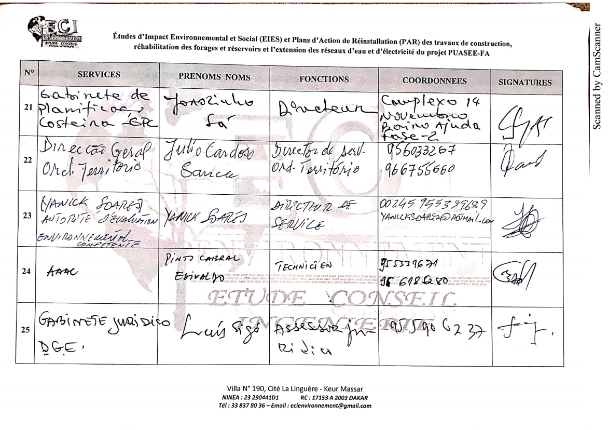 Études d'Impact Environnemental et Social (EIES) et Plans d'Action de Réinstallation (PAR) des travaux de construction,
réhabilitation des forages et réservoirs et l'extension des réseaux d'eau et d'électricité du projet PUASEE-FA
N° SERVICES PRENOMS NOMS FONCTIONS COORDONNEES SIGNATURES
21
Gabinete de
Planificaç
Costeira GPC
Joãozinho
Sá
Directeur
Complexo 14
Novembro
Bairro Ajuda
Fase-2
22
Direcção Geral
Ord. Território
Julio Cardoso
Director de Serv.
Ord. Território
956033267
966755660
23
YANICK SOARES
AUTORITÉ D'EVALUATION
ENVIRONNEMENTAL
COMPETENTE
YANICK SOARES
DIRECTEUR DE
SERVICE
24
AAAC
PINTO CABRAL
TECHNICIEN
25
GABINETE JURÍDICO
DGE.
Luís
Assessor ju-
ridico
955906237
ENVIRONNEMENT
ETUDE CONSEIL
INGENIERIE
Villa N° 190, Cité La Linguère - Keur Massar
NINEA : 23 2904401 RC : 17153 A 2003 DAKAR
Tél : 33 837 80 36 – Email : ecienvironnement@gmail.com
Scanned by CamScanner